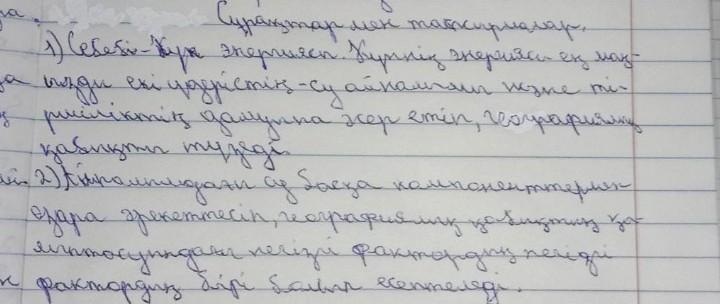 Сұрақтар мен тапсырмалар.
1) Себебі - Күн энергиясы. Күннің энергиясы ең маң-
ызды екі үдерістің - су айналымы және ті-
ршіліктің дамуына әсер етіп, географиялық
қабықты түзеді.
2) Құрамындағы су басқа компоненттермен
өзара әрекеттесіп, географиялық қабықтың қа-
лыптасуындағы негізгі фактордың негізгі
фактордың бірі болып есептеледі.